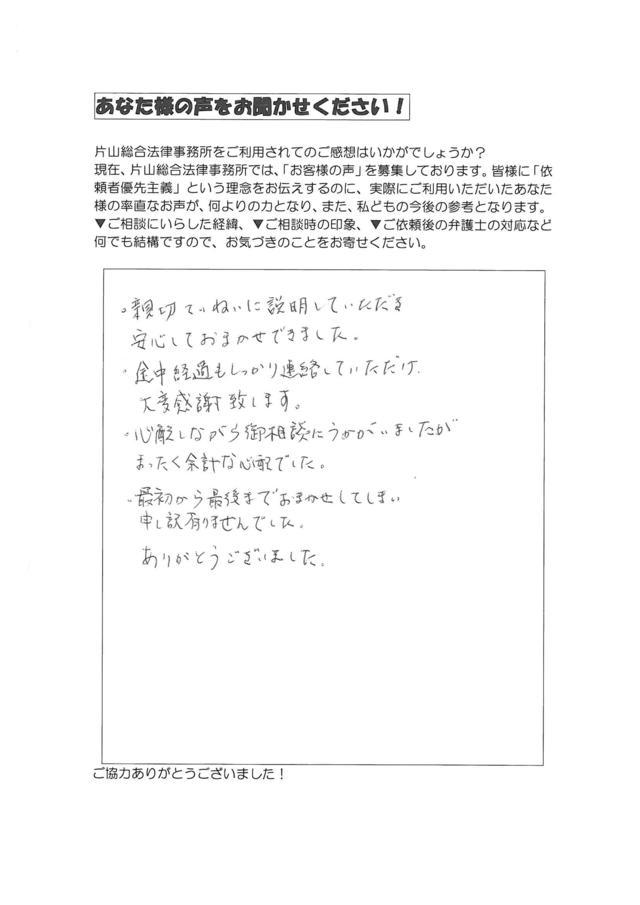 あなた様の声をお聞かせください！
片山総合法律事務所をご利用されてのご感想はいかがでしょうか？
現在、片山総合法律事務所では、「お客様の声」を募集しております。皆様に「依
頼者優先主義」という理念をお伝えするのに、実際にご利用いただいたあなた
様の率直なお声が、何よりの力となり、また、私どもの今後の参考となります。
▼ご相談にいらした経緯、▼ご相談時の印象、▼ご依頼後の弁護士の対応など
何でも結構ですので、お気づきのことをお寄せください。
・親切ていねいに説明していただき
安心しておまかせできました。
・途中経過もしっかり連絡していただけ
大変感謝致します。
・心配しながら御相談にうかがいましたが
まったく余計な心配でした。
・最初から最後までおまかせしてしまい
申し訳有りませんでした。
ありがとうございました。
ご協力ありがとうございました！